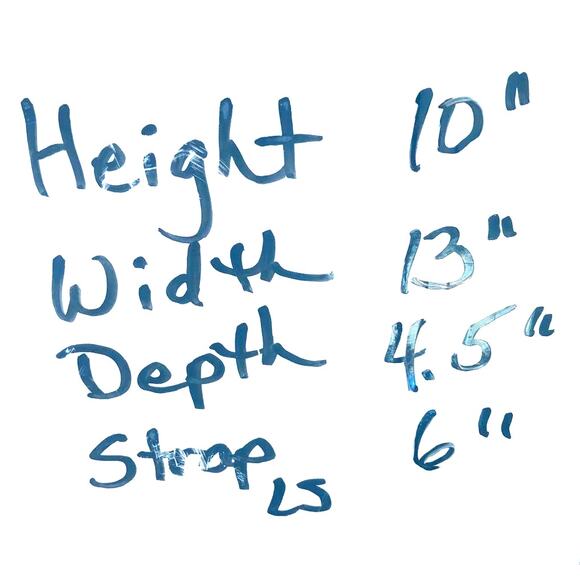 Height 10"
Width 13"
Depth 4.5"
Strap LS 6"